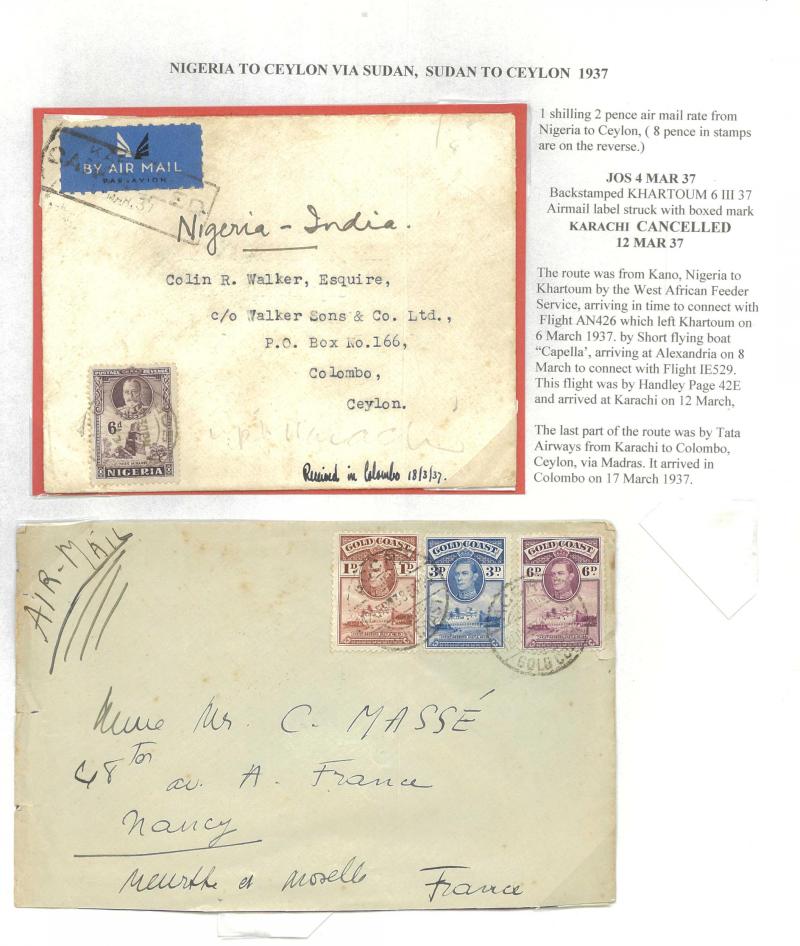 NIGERIA TO CEYLON VIA SUDAN, SUDAN TO CEYLON 1937
1 shilling 2 pence air mail rate from
Nigeria to Ceylon, ( 8 pence in stamps
are on the reverse.)
JOS 4 MAR 37
Backstamped KHARTOUM 6 III 37
Airmail label struck with boxed mark
KARACHI CANCELLED
12 MAR 37
The route was from Kano, Nigeria to
Khartoum by the West African Feeder
Service, arriving in time to connect with
Flight AN426 which left Khartoum on
6 March 1937. by Short flying boat
“Capella’, arriving at Alexandria on 8
March to connect with Flight IE529.
This flight was by Handley Page 42E
and arrived at Karachi on 12 March,
The last part of the route was by Tata
Airways from Karachi to Colombo,
Ceylon, via Madras. It arrived in
Colombo on 17 March 1937.
BY AIR MAIL
PAR AVION
MAR. 37
Nigeria - India.
Colin R. Walker, Esquire,
c/o Walker Sons & Co. Ltd.,
P.O. Box No.166,
Colombo,
Ceylon.
POSTAGE REVENUE
6d
NIGERIA
Received in Colombo 18/3/37.
AIR-MAIL
GOLD COAST
1D 1D
GOLD COAST
3D 3D
GOLD COAST
6D 6D
GOLD CO
Mr. C. MASSÉ
48 ter av. A. France
Nancy
Meurthe et Moselle France